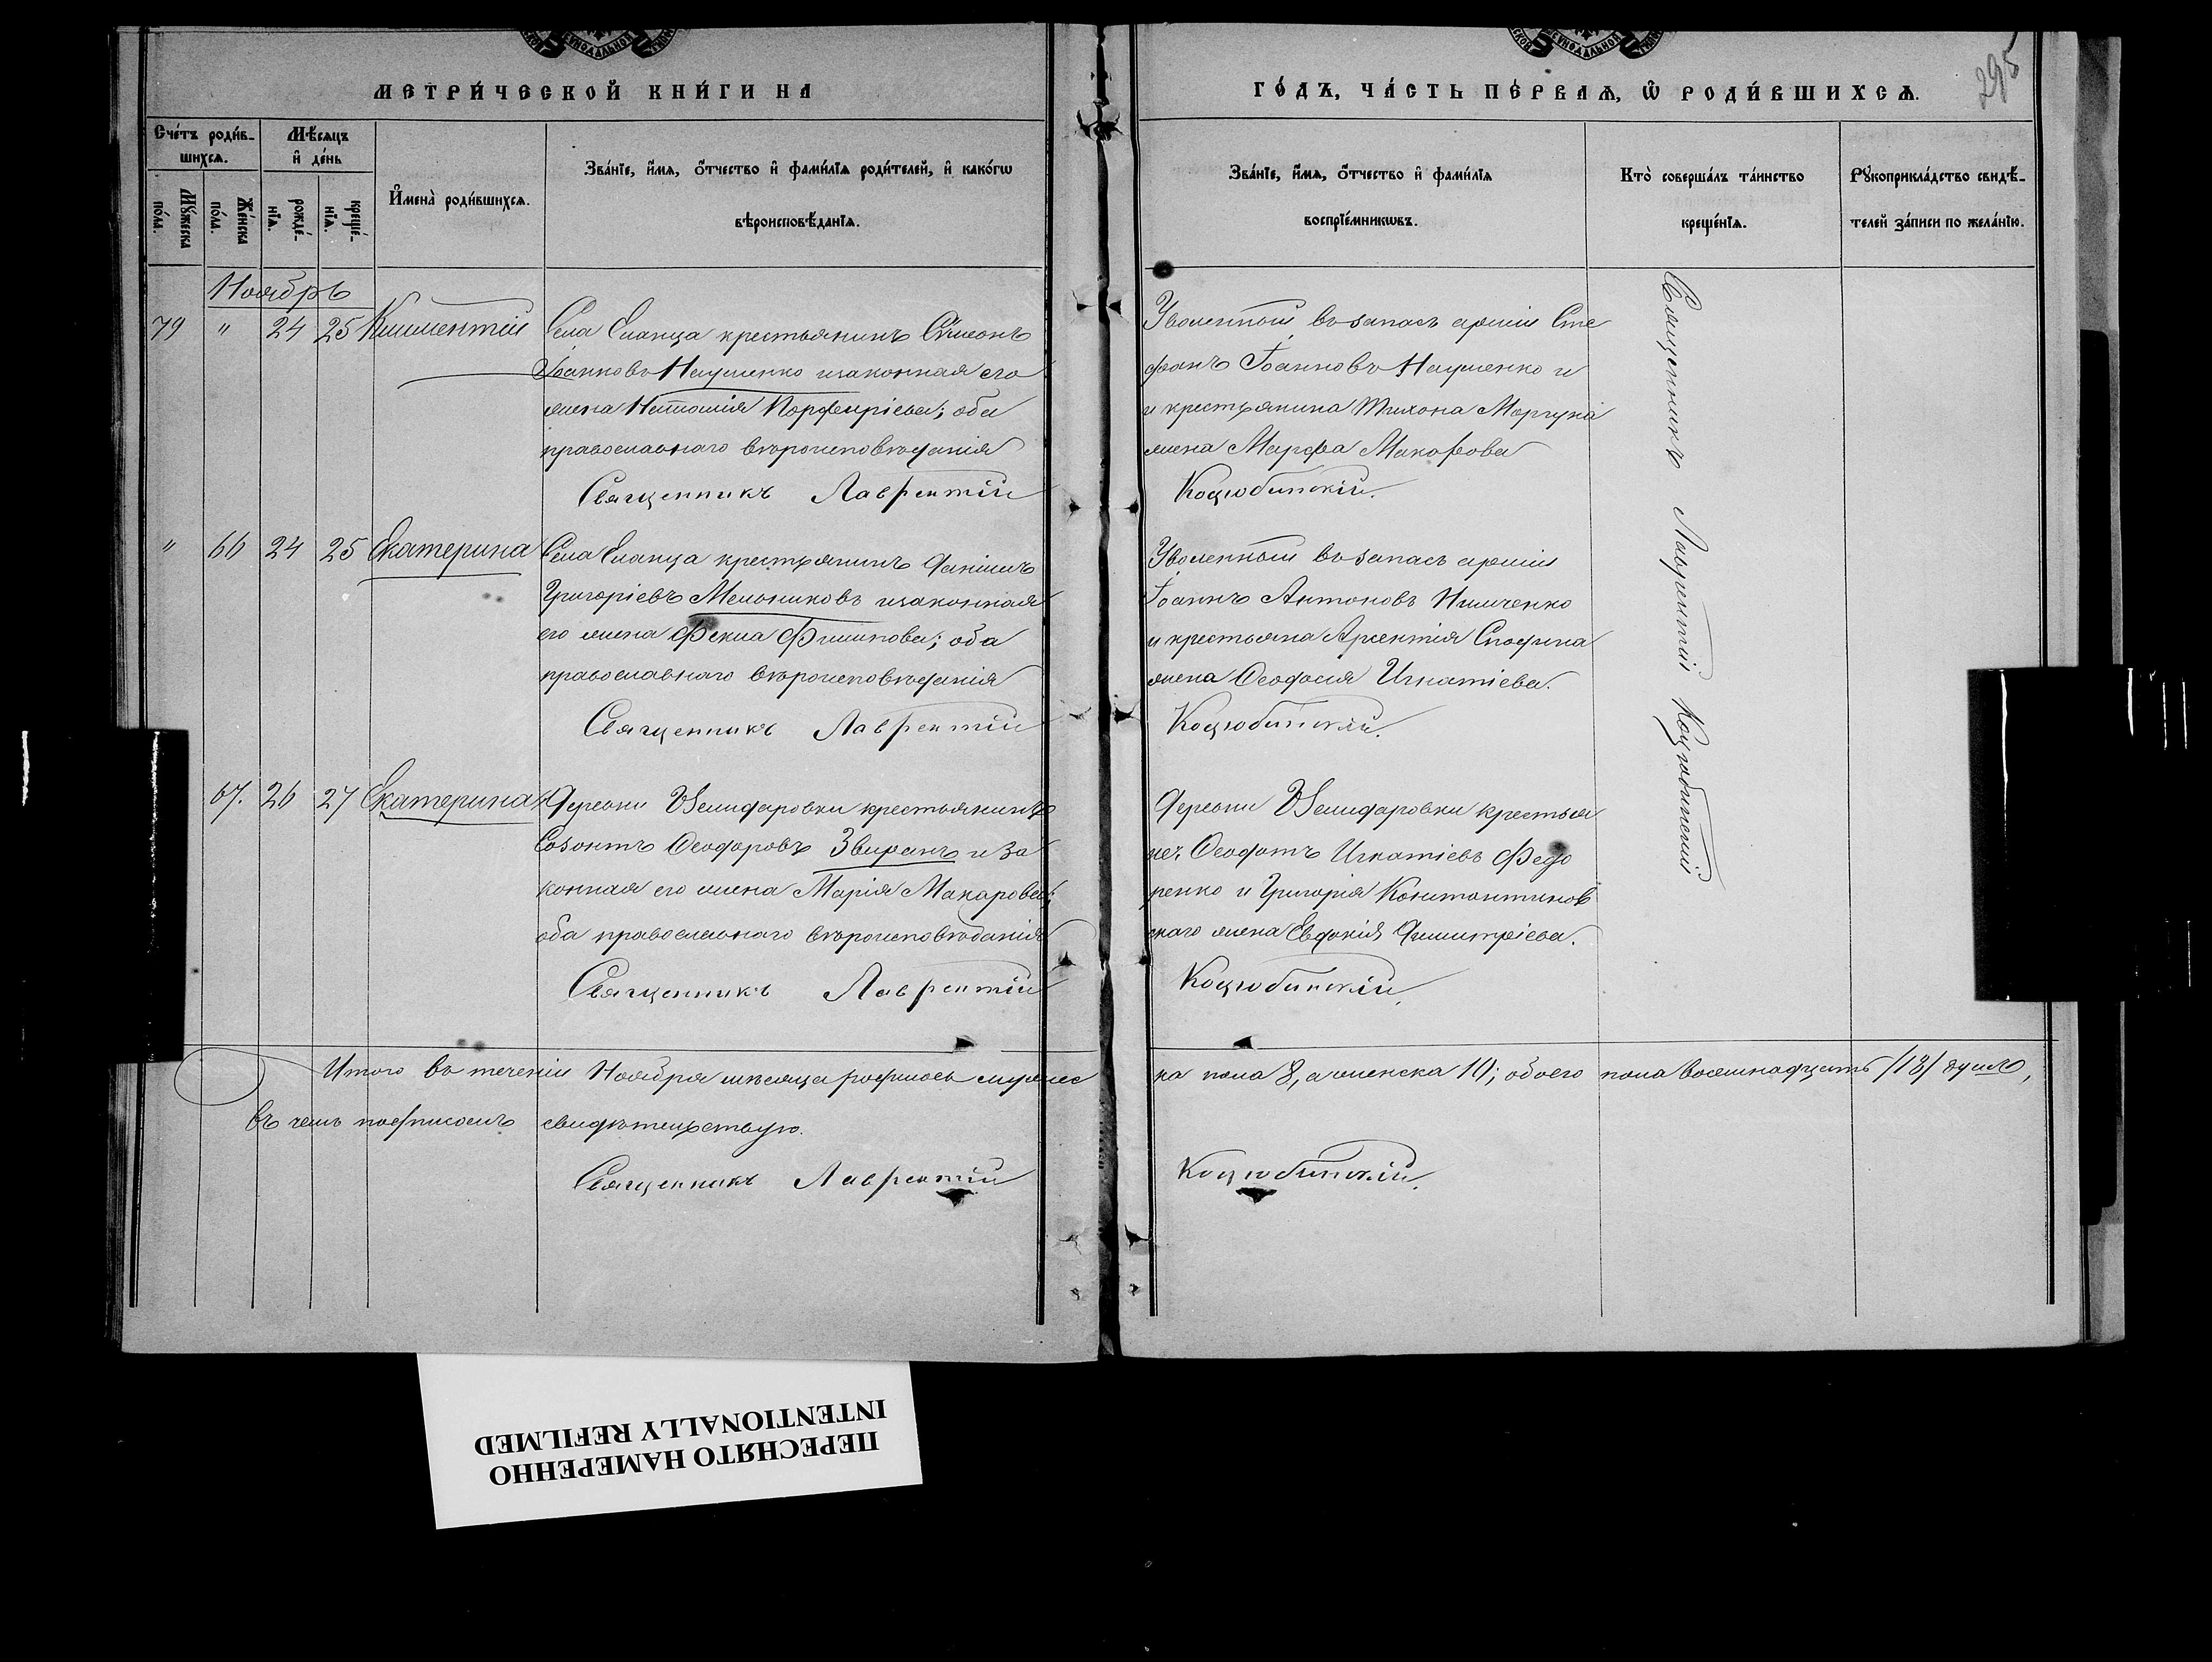 МЕТРИ́ЧЕСКОЙ КНИ́ГИ НА
ГО́ДЪ, ЧА́СТЬ ПЕ́РВАѦ, Ѡ҆ РОДИ́ВШИХСѦ.
295
Сче́тъ роди́в-
шихсѧ.
Мѣ́сѧцъ
и҆ де́нь
Мꙋ́жеска
по́ла.
Же́нска
по́ла.
рожде́-
нїѧ.
креще́-
нїѧ.
И҆мена̀ роди́вшихсѧ.
Зва́нїе, и҆́мѧ, ѻ҆́тчество и҆ фами́лїѧ роди́телей, и҆ како́гѡ
вѣроисповѣ́данїѧ.
Зва́нїе, и҆́мѧ, ѻ҆́тчество и҆ фами́лїѧ
воспрїе́мникѡвъ.
Кто̀ соверша́лъ та́инство
креще́нїѧ.
Рꙋкоприкла́дство свидѣ́-
телей за́писи по жела́нїю.
Ноябрь
79 " 24 25 Климентій
Села Еланца крестьянинъ Сѷмеонъ
Іоанновъ Науменко и законная его
жена Наталія Порфиріева; оба
православнаго вѣроисповѣданія
Священникъ Лаврентій
Уволенный въ запасъ арміи Сте
фанъ Іоанновъ Науменко и
и крестьянина Тихона Моргуна
жена Марфа Макарова
Коцюбинскій.
Священникъ Лаврентій Коцюбинскій
" 66 24 25 Екатерина
Села Еланца крестьянинъ Даніилъ
Григоріевъ Мельниковъ и законная
его жена Фекла Филипова; оба
православнаго вѣроисповѣданія
Священникъ Лаврентій
Уволенный въ запасъ арміи
Іоаннъ Антоновъ Нимченко
и крестьяна Арсентія
жена Феодосия Игнатіева.
Коцюбинскій.
67. 26 27 Екатерина
Деревни крестьянинъ
Созонтъ Феодоровъ Звиранъ и за
конная его жена Марія Макарова;
оба православнаго вѣроисповѣданія
Священникъ Лаврентій
Деревни крестья
не: Феодотъ Игнатіевъ Федо
ренко и Григорія Константинов
скаго жена Евдокія Димитріева.
Коцюбинскій.
Итого въ теченіи Ноября мѣсяца родилось мужес
ка пола 8, а женска 10; обоего пола восемнадцать /18/ душъ,
въ чемъ подписомъ свидѣтельствую.
Священникъ Лаврентій
Коцюбинскій.
ПЕРЕСНЯТО НАМЕРЕННО
INTENTIONALLY REFILMED